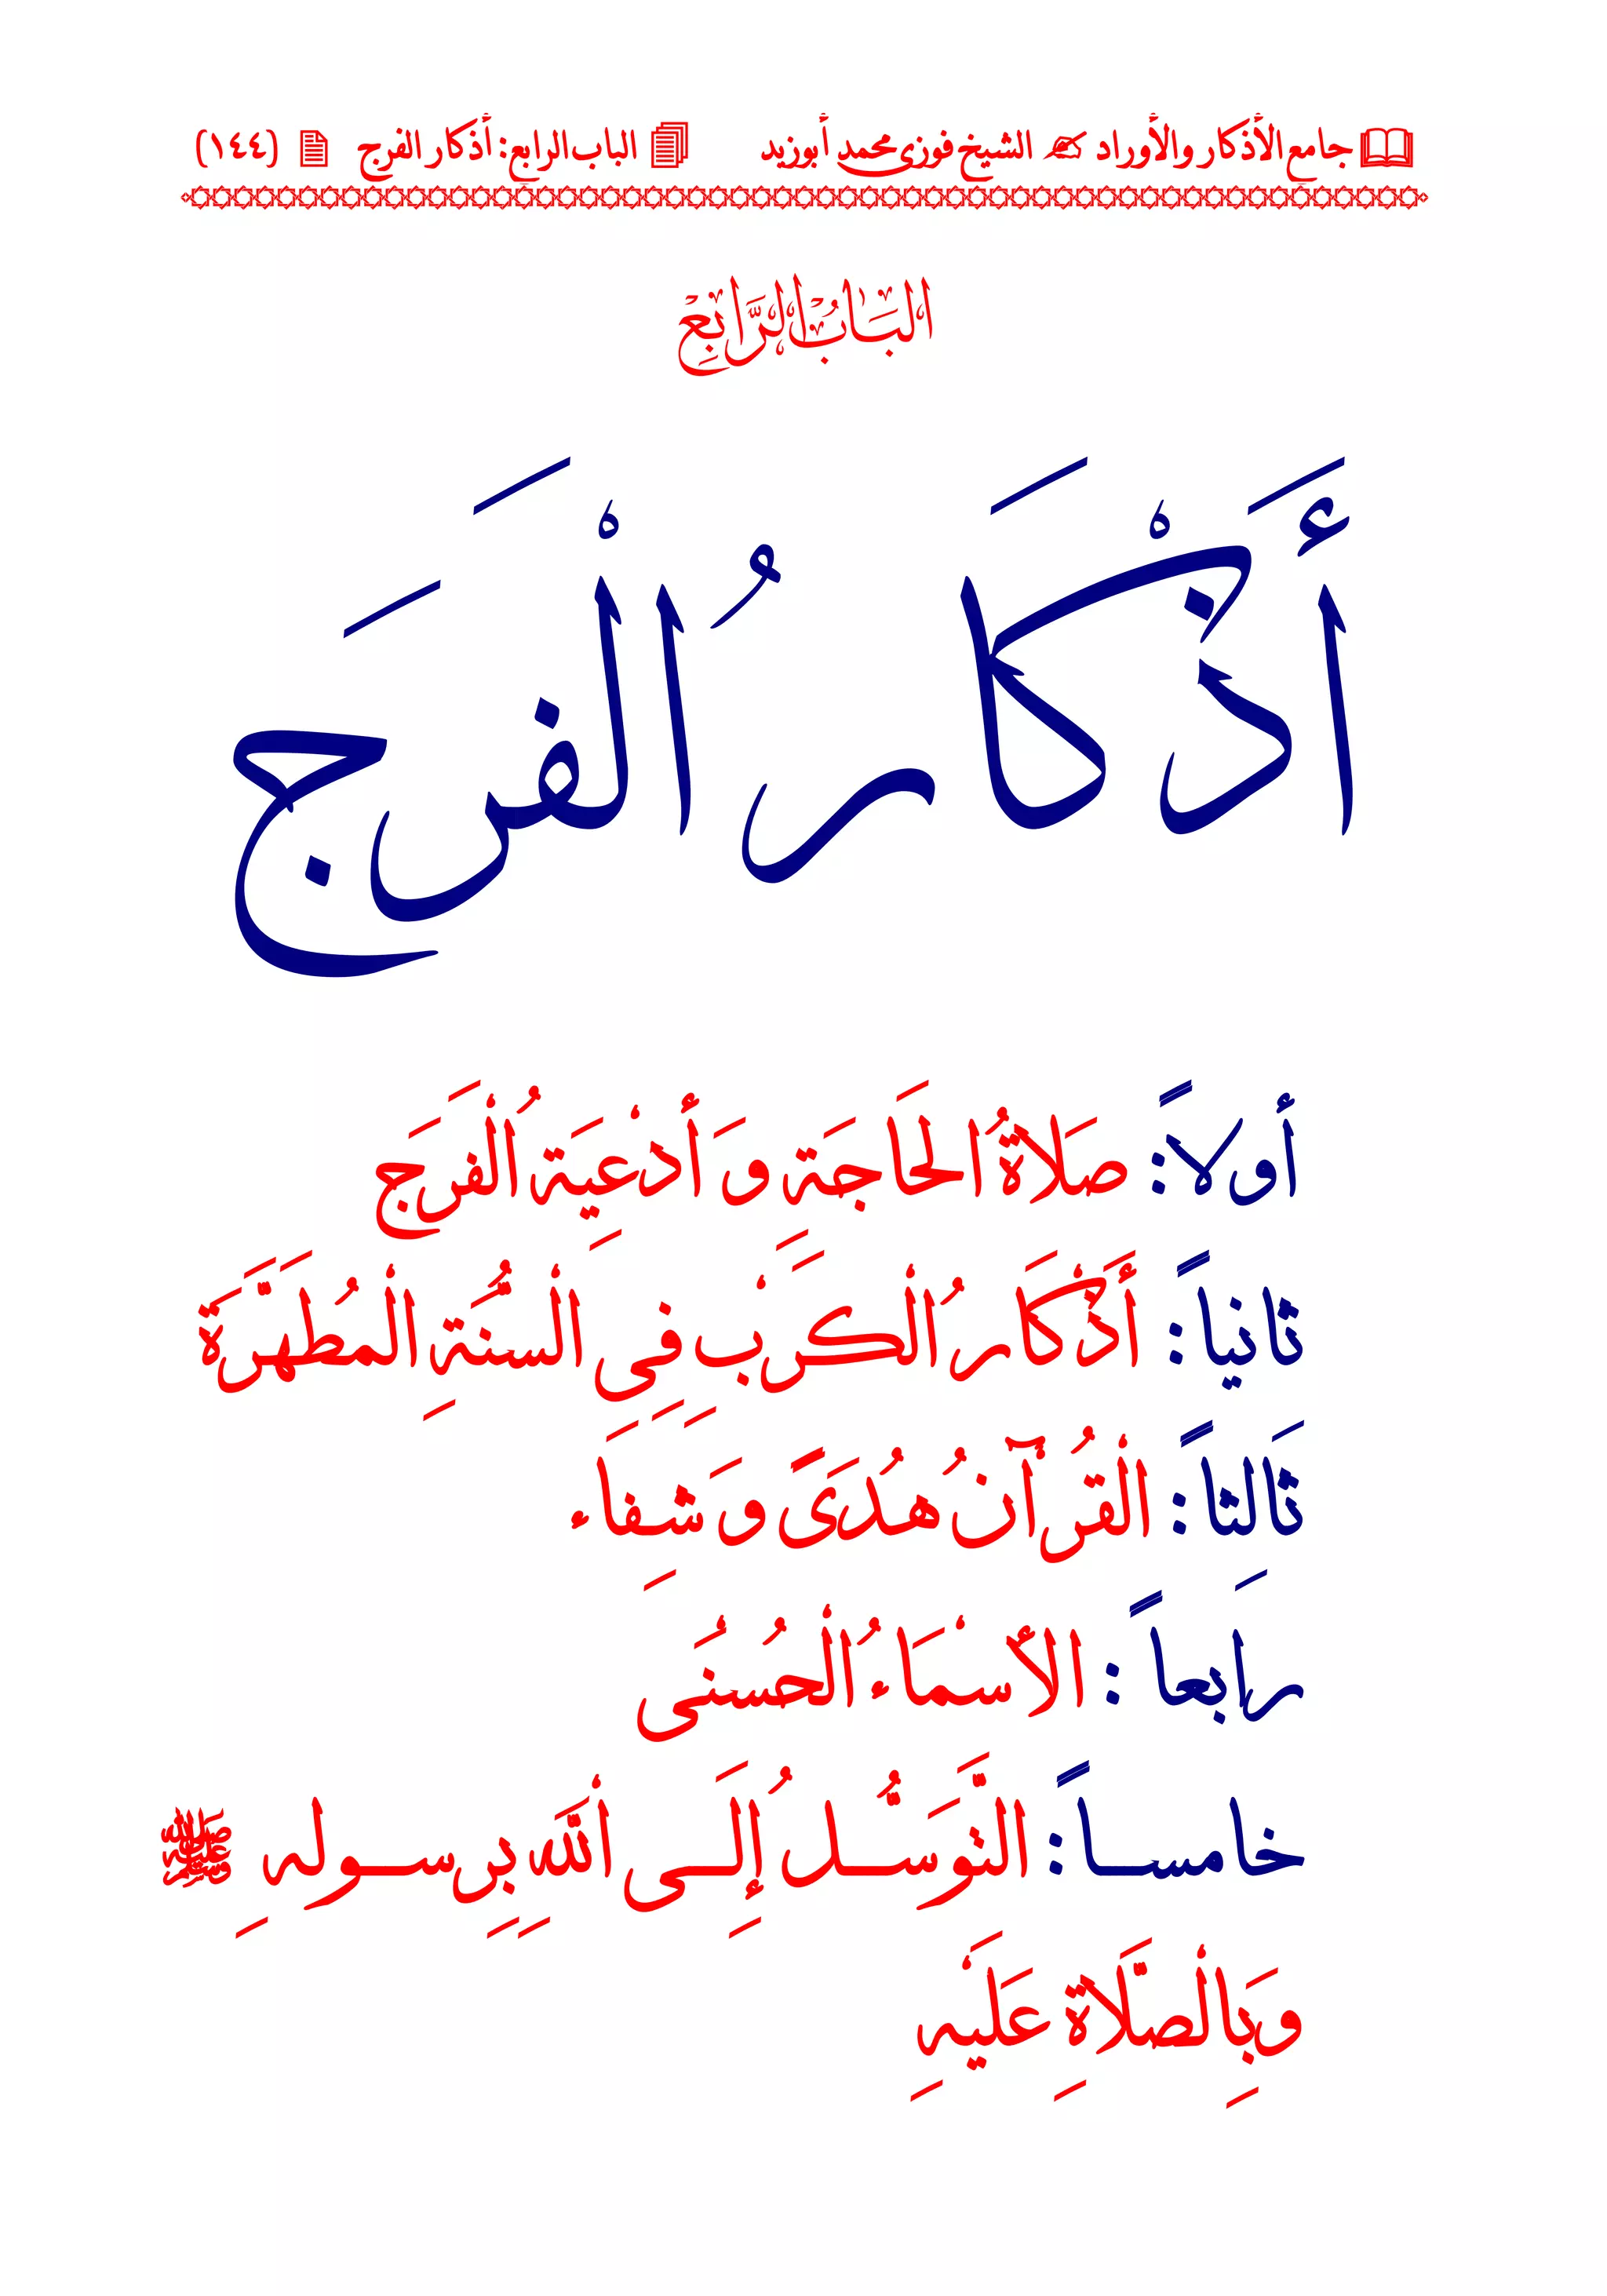 جامع الأذكار والأوراد الشيخ فوزى محمد أبوزيد الباب الرابع: أذكار الفرج (١٤٤)
البَابُ الرَّابِعُ
أَذْكَارُ الْفَرَج
أولاً: صَلاَةُ الحَاجَةِ وَ أَدْعِيَةُ الْفَرَج
ثانياً: أَذْكَارُ الْكَرْبِ فِي السُّنَّةِ الْمُطَهَّرَة
ثَالِثاً: الْقُرْآنُ هُدَىً وَ شِفَاء
رابعاً: الأَسْمَاءُ الْحُسْنَى
خامســاً: التَّوَسُّــلُ إِلَــى اللهِ بِرِســولِهِ ﷺ
وَبِالصَّلَاةِ عَلَيْهِ